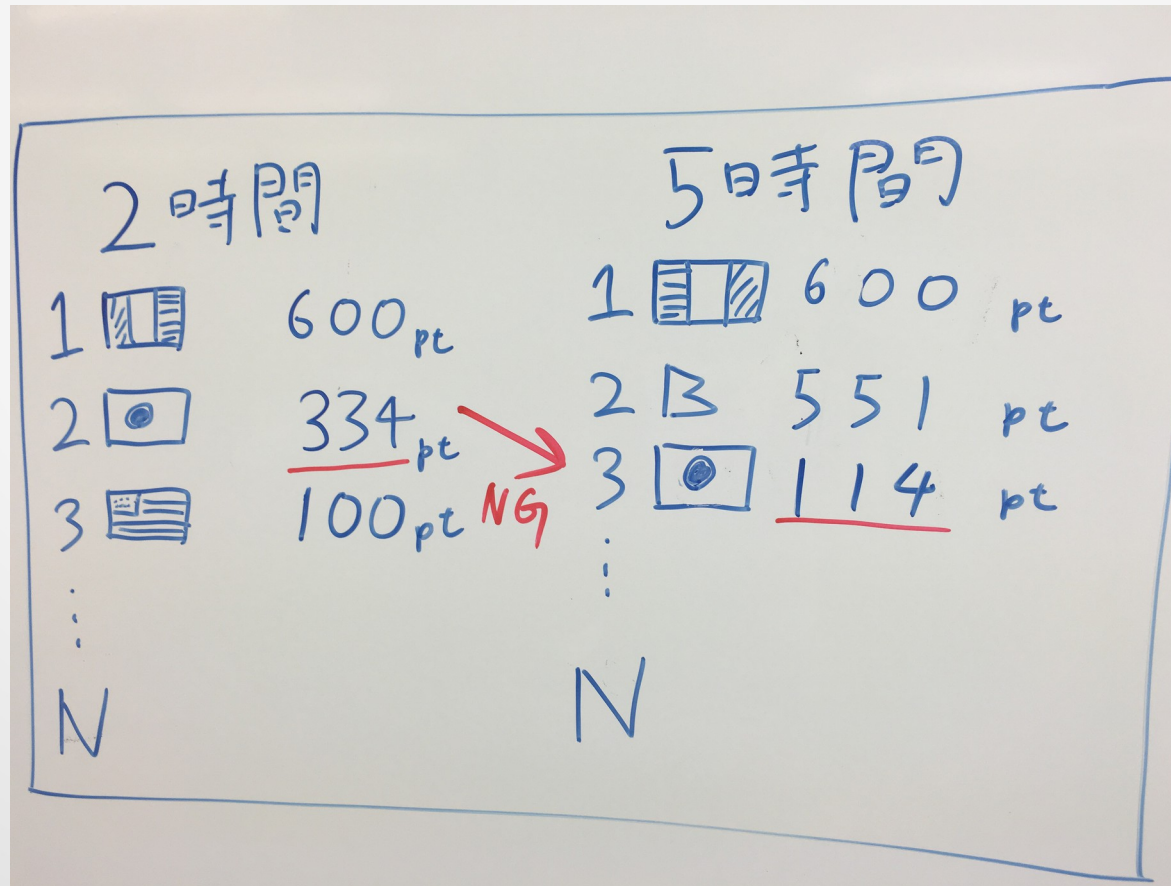 2時間
1 600pt
2 334pt
3 100pt
N
NG
5時間
1 600 pt
2 B 551 pt
3 114 pt
N